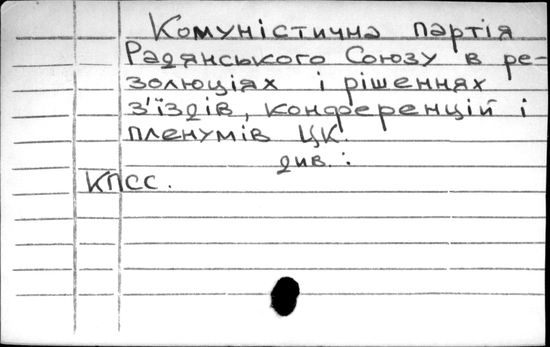 Комуністична партія
Радянського Союзу в ре-
золюціях і рішеннях
з'їздів, конференцій і
пленумів ЦК.
див.:
КПСС.